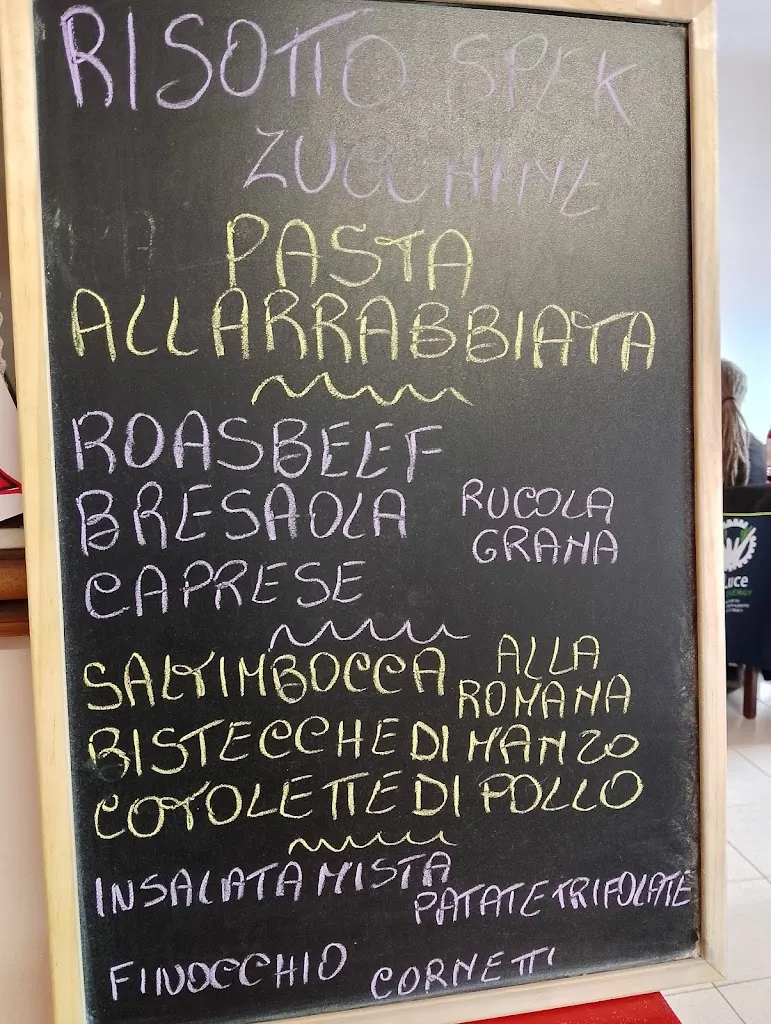 RISOTTO SPEK
ZUCCHINE
PASTA
ALLARRABBIATA
ROASBEEF
BRESAOLA RUCOLA
GRANA
CAPRESE
SALTIMBOCCA ALLA
ROMANA
BISTECCHE DI MANZO
COTOLETTE DI POLLO
INSALATA MISTA
PATATE TRIFOLATE
FINOCCHIO CORNETTI
LUCE